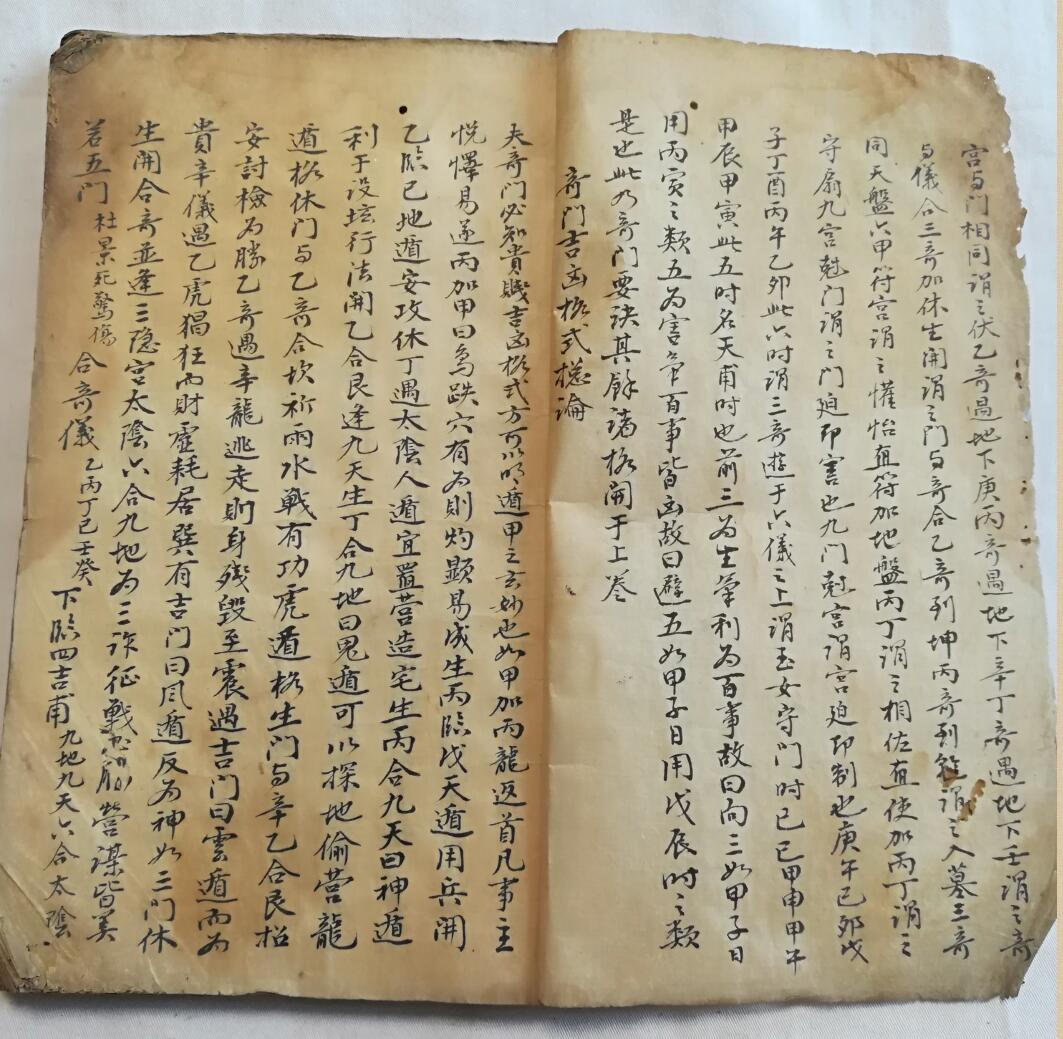 宫与门相同谓之伏乙奇遇地下庚丙奇遇地下辛丁奇遇地下壬谓之奇
与儀合三奇加休生開谓之门与奇合乙奇到坤丙奇到乾谓之入墓三奇
同天盤六甲符宫谓之懽怡直符加地盤丙丁谓之相佐直使加丙丁谓之
守扇九宫尅门谓之门迫即害也九门尅宫谓宫迫即制也庚午己卯戊
子丁酉丙午乙卯此六时谓三奇遊于六儀之上谓玉女守门时己巳甲申甲午
甲辰甲寅此五时名天甫时也前三为生氣利为百事故曰向三如甲子日
用丙寅之類五为害氣百事皆凶故曰避五如甲子日用戊辰时之類
是也此乃奇门要诀其餘诸格開于上卷
奇门吉凶格式總論
夫奇门必知貴賤吉凶格式方可以明遁甲之玄妙也如甲加丙龍返首凡事主
悦懌易遂丙加甲曰鳥跌穴有为則灼顯易成生丙臨戊天遁用兵開
乙臨己地遁安攻休丁遇太陰人遁宜置营造宅生丙合九天曰神遁
利于设坛行法開乙合艮逢九天生丁合九地曰鬼遁可以探地偷营龍
遁格休门与乙奇合坎祈雨水戰有功虎遁格生门与辛乙合艮招
安討檢为勝乙奇遇辛龍逃走則身殘毀至震遇吉门曰雲遁而为
貴辛儀遇乙虎猖狂而財虛耗居巽有吉门曰風遁反为神如三门休
生開合奇並逢三隐宫太陰六合九地为三诈征戰營謀皆美
若五门杜景死驚傷合奇儀乙丙丁己壬癸下臨四吉甫九地九天六合太陰